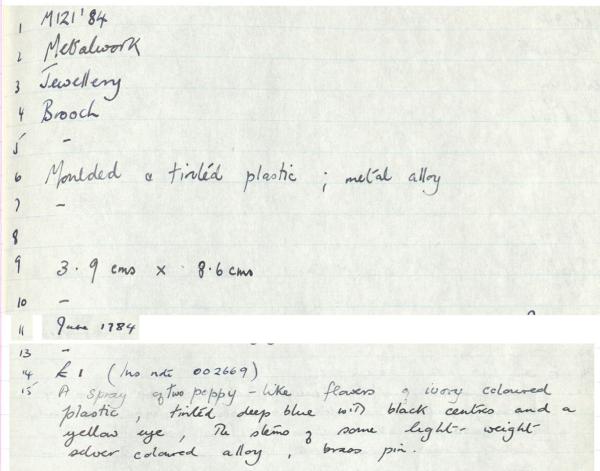 1 M121'84
2 Metalwork
3 Jewellery
4 Brooch
5 -
6 Moulded & tinted plastic ; metal alloy
7 -
8
9 3.9 cms x 8.6 cms
10 -
11 June 1984
13 -
14 £1 (Ins note 002669)
15 A spray of two poppy-like flowers of ivory coloured
plastic, tinted deep blue with black centres and a
yellow eye, The stems of some light-weight
silver coloured alloy, brass pin.